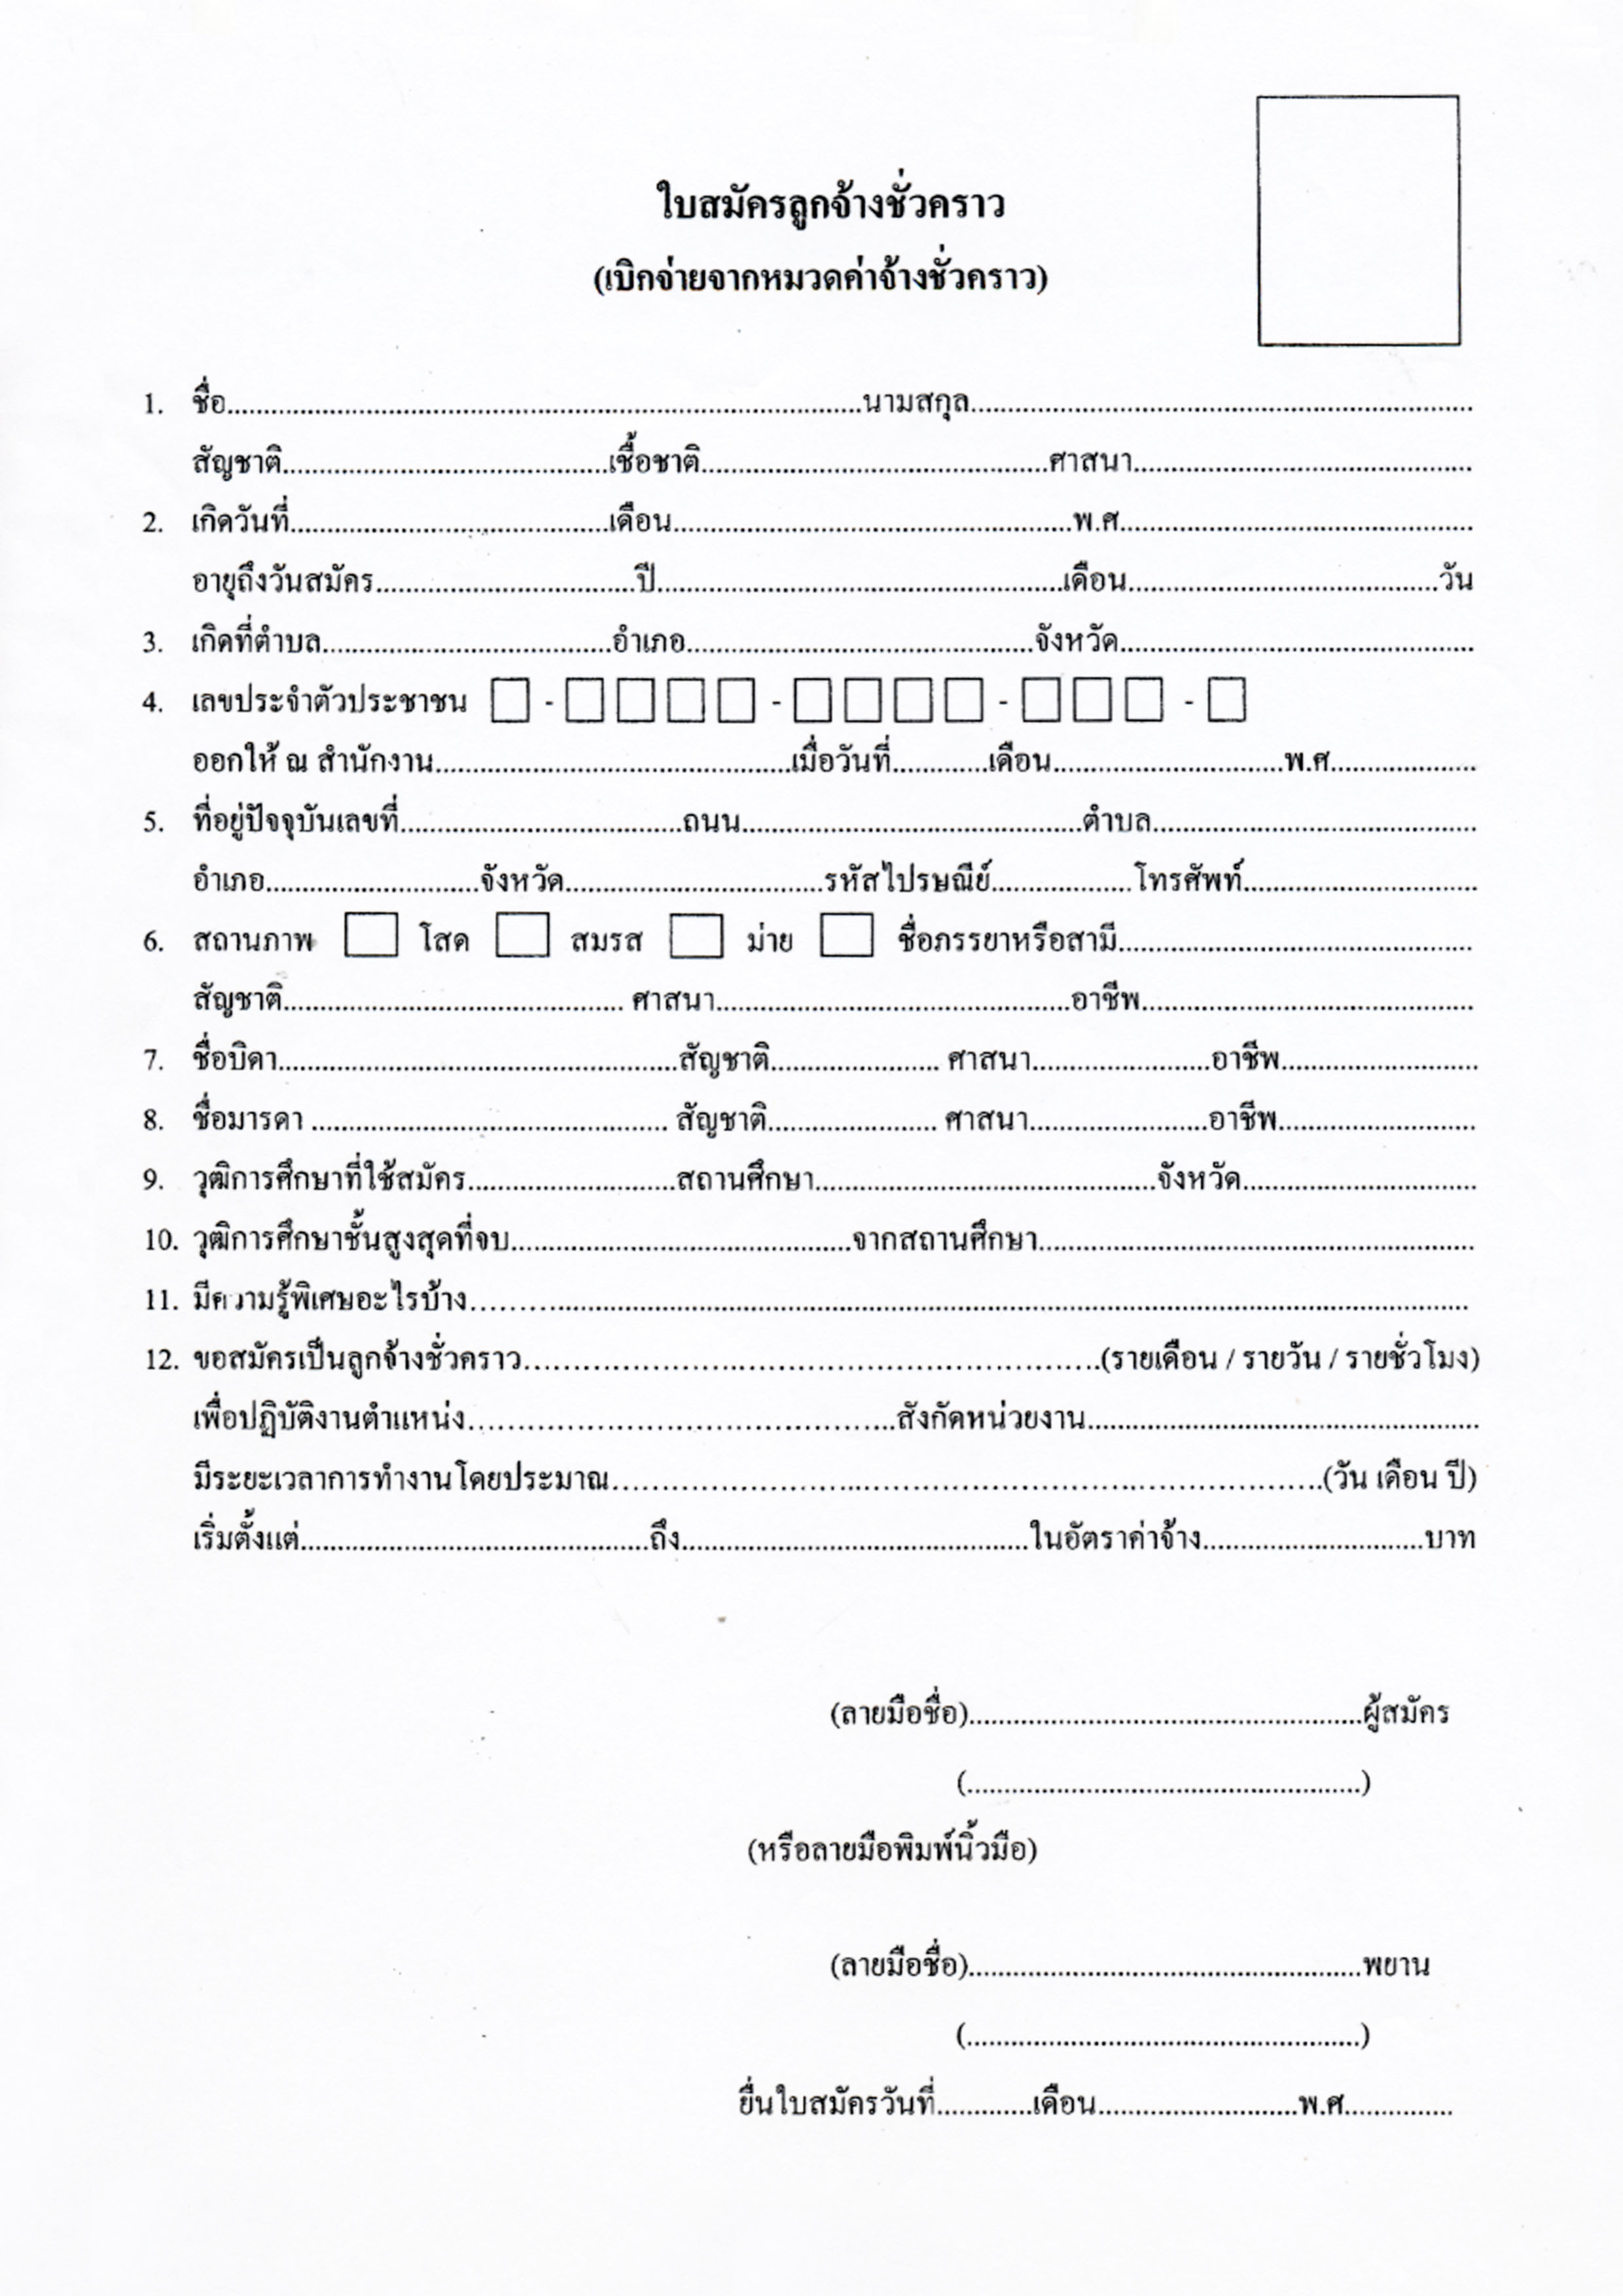 ใบสมัครลูกจ้างชั่วคราว
(เบิกจ่ายจากหมวดค่าจ้างชั่วคราว)
1. ชื่อ....................นามสกุล....................
สัญชาติ....................เชื้อชาติ....................ศาสนา....................
2. เกิดวันที่....................เดือน....................พ.ศ....................
อายุถึงวันสมัคร....................ปี....................เดือน....................วัน
3. เกิดที่ตำบล....................อำเภอ....................จังหวัด....................
4. เลขประจำตัวประชาชน □ - □□□□ - □□□□ - □□□ - □
ออกให้ ณ สำนักงาน....................เมื่อวันที่.............เดือน....................พ.ศ....................
5. ที่อยู่ปัจจุบันเลขที่....................ถนน....................ตำบล....................
อำเภอ....................จังหวัด....................รหัสไปรษณีย์....................โทรศัพท์....................
6. สถานภาพ □ โสด □ สมรส □ ม่าย □ ชื่อภรรยาหรือสามี....................
สัญชาติ.................... ศาสนา....................อาชีพ....................
7. ชื่อบิดา....................สัญชาติ.................... ศาสนา....................อาชีพ....................
8. ชื่อมารดา .................... สัญชาติ.................... ศาสนา....................อาชีพ....................
9. วุฒิการศึกษาที่ใช้สมัคร....................สถานศึกษา....................จังหวัด....................
10. วุฒิการศึกษาชั้นสูงสุดที่จบ....................จากสถานศึกษา....................
11. มีความรู้พิเศษอะไรบ้าง....................
12. ขอสมัครเป็นลูกจ้างชั่วคราว....................(รายเดือน / รายวัน / รายชั่วโมง)
เพื่อปฏิบัติงานตำแหน่ง....................สังกัดหน่วยงาน....................
มีระยะเวลาการทำงานโดยประมาณ....................(วัน เดือน ปี)
เริ่มตั้งแต่....................ถึง....................ในอัตราค่าจ้าง....................บาท
(ลายมือชื่อ)....................ผู้สมัคร
(....................)
(หรือลายมือพิมพ์นิ้วมือ)
(ลายมือชื่อ)....................พยาน
(....................)
ยื่นใบสมัครวันที่.............เดือน....................พ.ศ...............